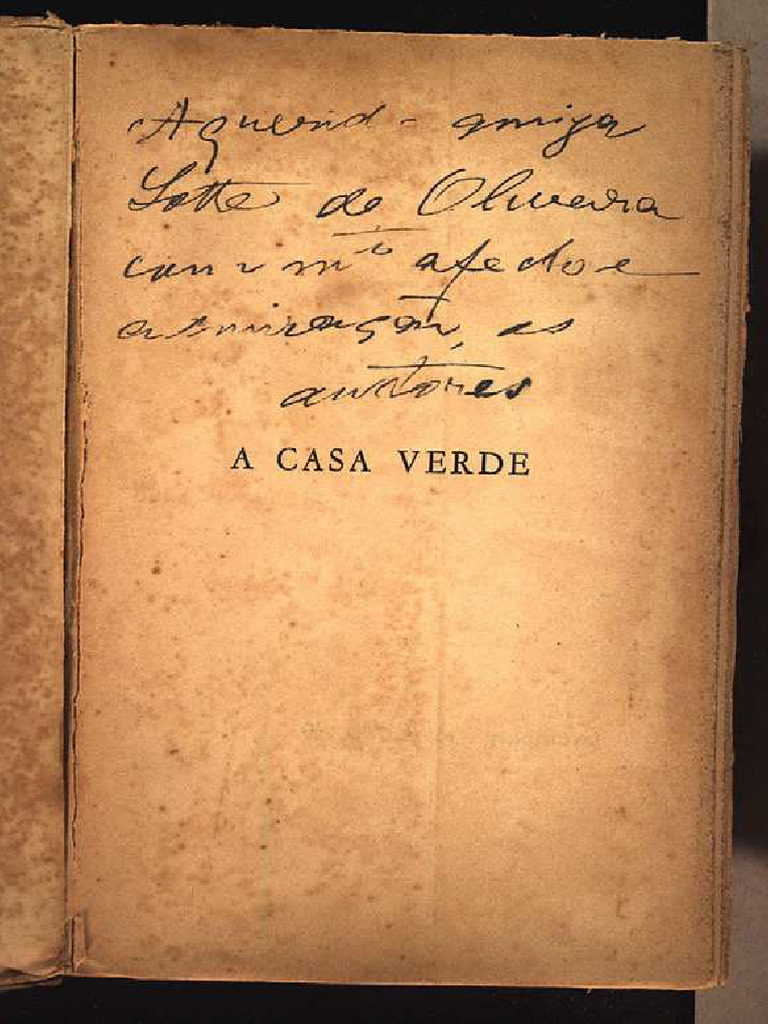 A querida amiga
Lotte de Oliveira
com mto afecto e
admiração, os
auctores
A CASA VERDE